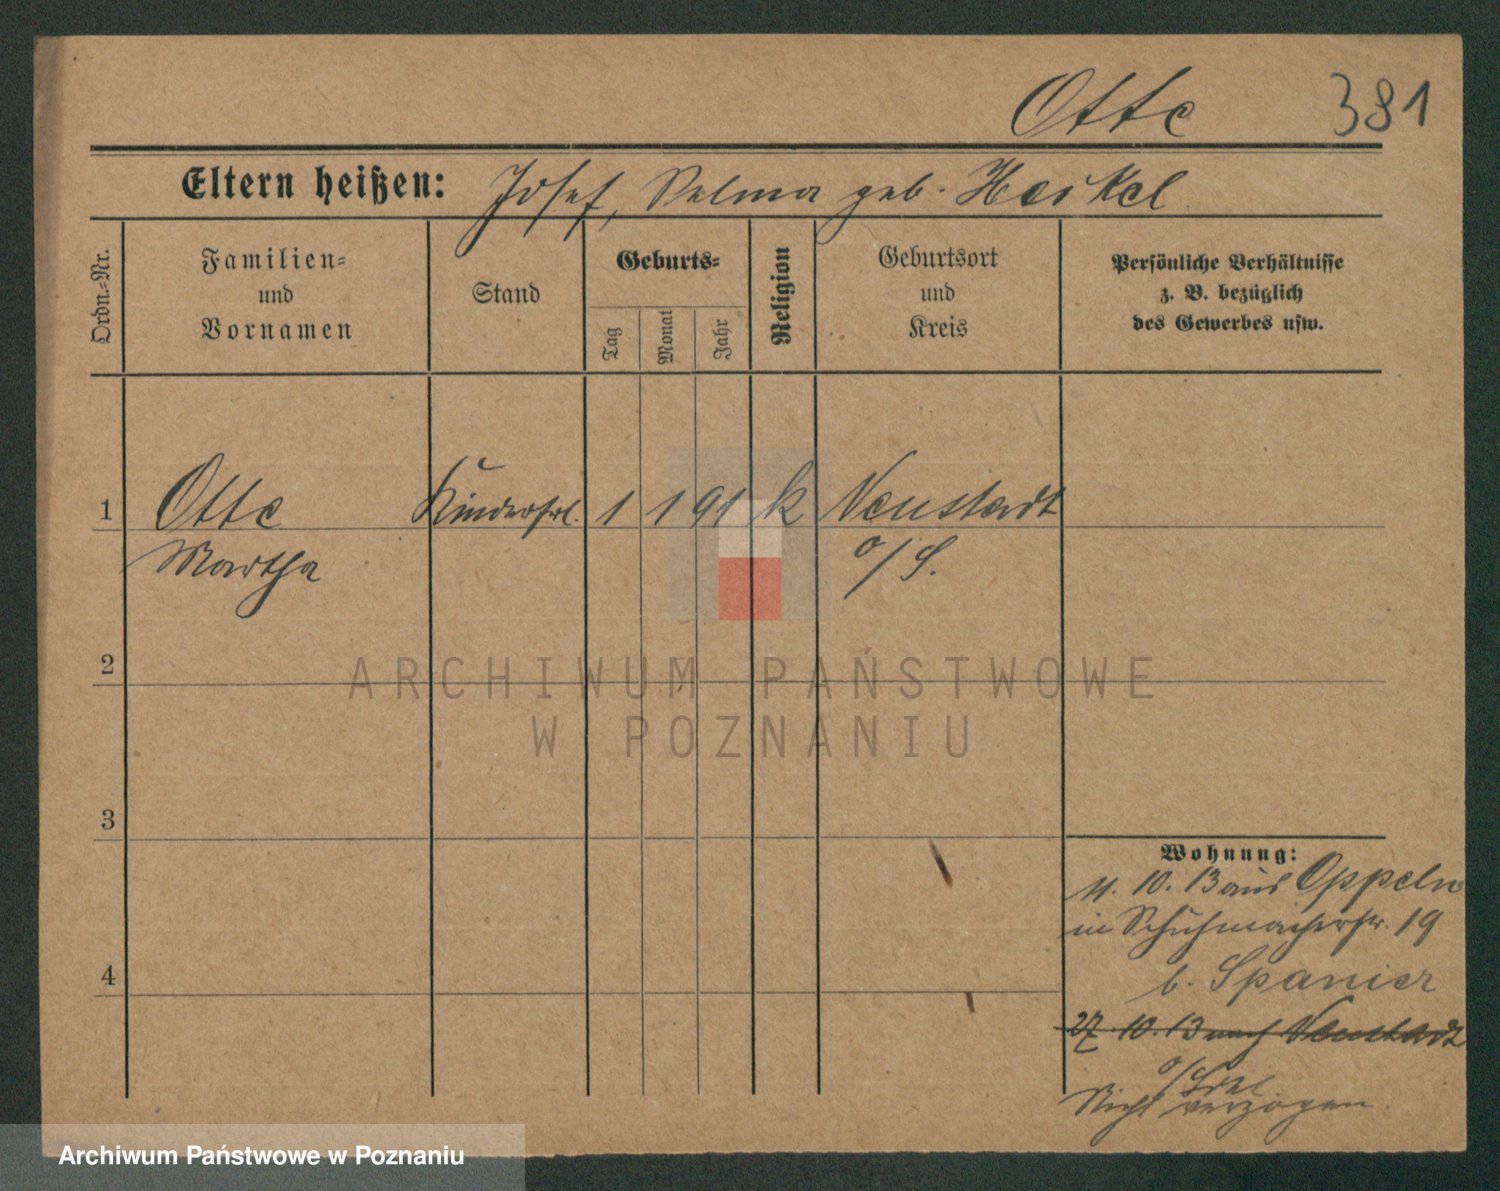 Otte 381
Eltern heißen: Josef, Selma geb. Heikel
Ordn.-Nr.
Familien- und Vornamen
Stand
Geburts-
Tag
Monat
Jahr
Religion
Geburtsort und Kreis
Persönliche Verhältnisse z. B. bezüglich des Gewerbes usw.
1 Otte Kinderfrl. 1 1 91 k Neustadt
Martha o/S.
2
ARCHIWUM PAŃSTWOWE
W POZNANIU
3
Wohnung:
11. 10. 13 aus Oppeln
in Schuhmacherstr. 19
b. Spanier
4
27. 10. 13 nach Neustadt
Nicht verzogen.
Archiwum Państwowe w Poznaniu